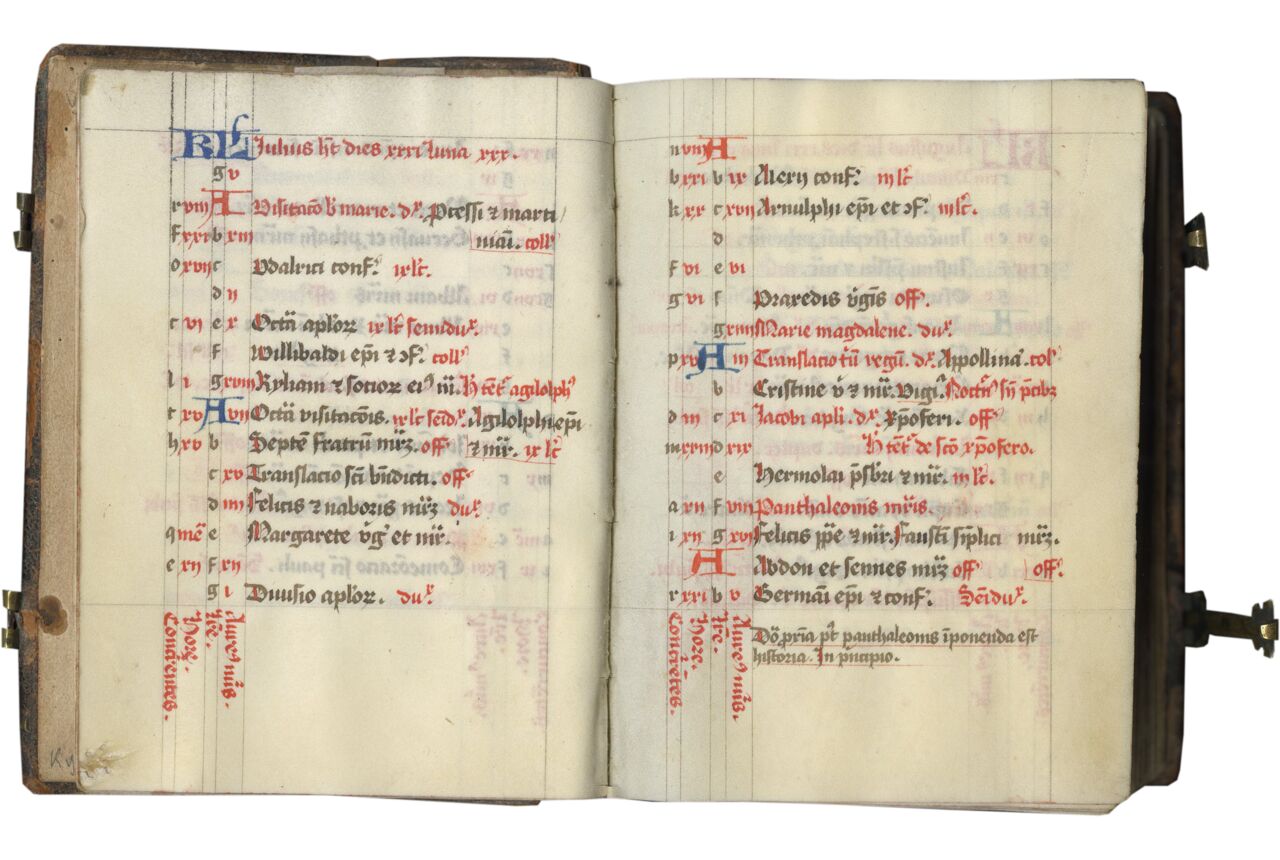 KL Julius ht dies xxxi luna xxx.
g v
r viii A Visitaco b marie. dx. pcessi z marti
f xxi b xiii niani. coll
o xvii c Vdalrici conf. ix lc.
d ii
c vi e x Octa aplorz ix lc semidux.
f Willibaldi epi z cf. coll
l i g xviii Kyliani z socior ei m. agilolphi
t xv A vii Octa visitacois. ix lc Agilolphi epi
h xv b Septe fratru mrz. off z mr. ix lc
c xv Translacio sci bndicti. off
d iiii Felicis z naboris mrz dux.
q me e Margarete vg et mr.
e xii f xii
g i Diuisio aplorz. dux.
Concretes.
Hore.
lre.
Aure nus.
n viii A
b xxi b ix Alexii conf. iii lc
k xx c xvii Arnulphi epi et cf. iii lc.
d
f vi e vi
g vi f Praxedis vgis off.
g xiiii Marie magdalene. dux.
p xv A iii Translacio tu regu. dx. Appollina. col
b Cristine v z mr. Vigi.
d iii c xi Jacobi apli. dx. xpoferi. off
m xxiii d xix de sco xpofero.
e Hermolai psbri z mr. iii lc.
a xii f viii Panthaleonis mris.
i xii g xvi Felicis ppe z mr. Fausti siplici mrz.
A Abdon et sennes mrz off off.
r xxi b v Germani epi z conf. Semidux.
panthaleonis iponenda est
historia. In pncipio.
Concretes.
Hore.
lre.
Aure nus.